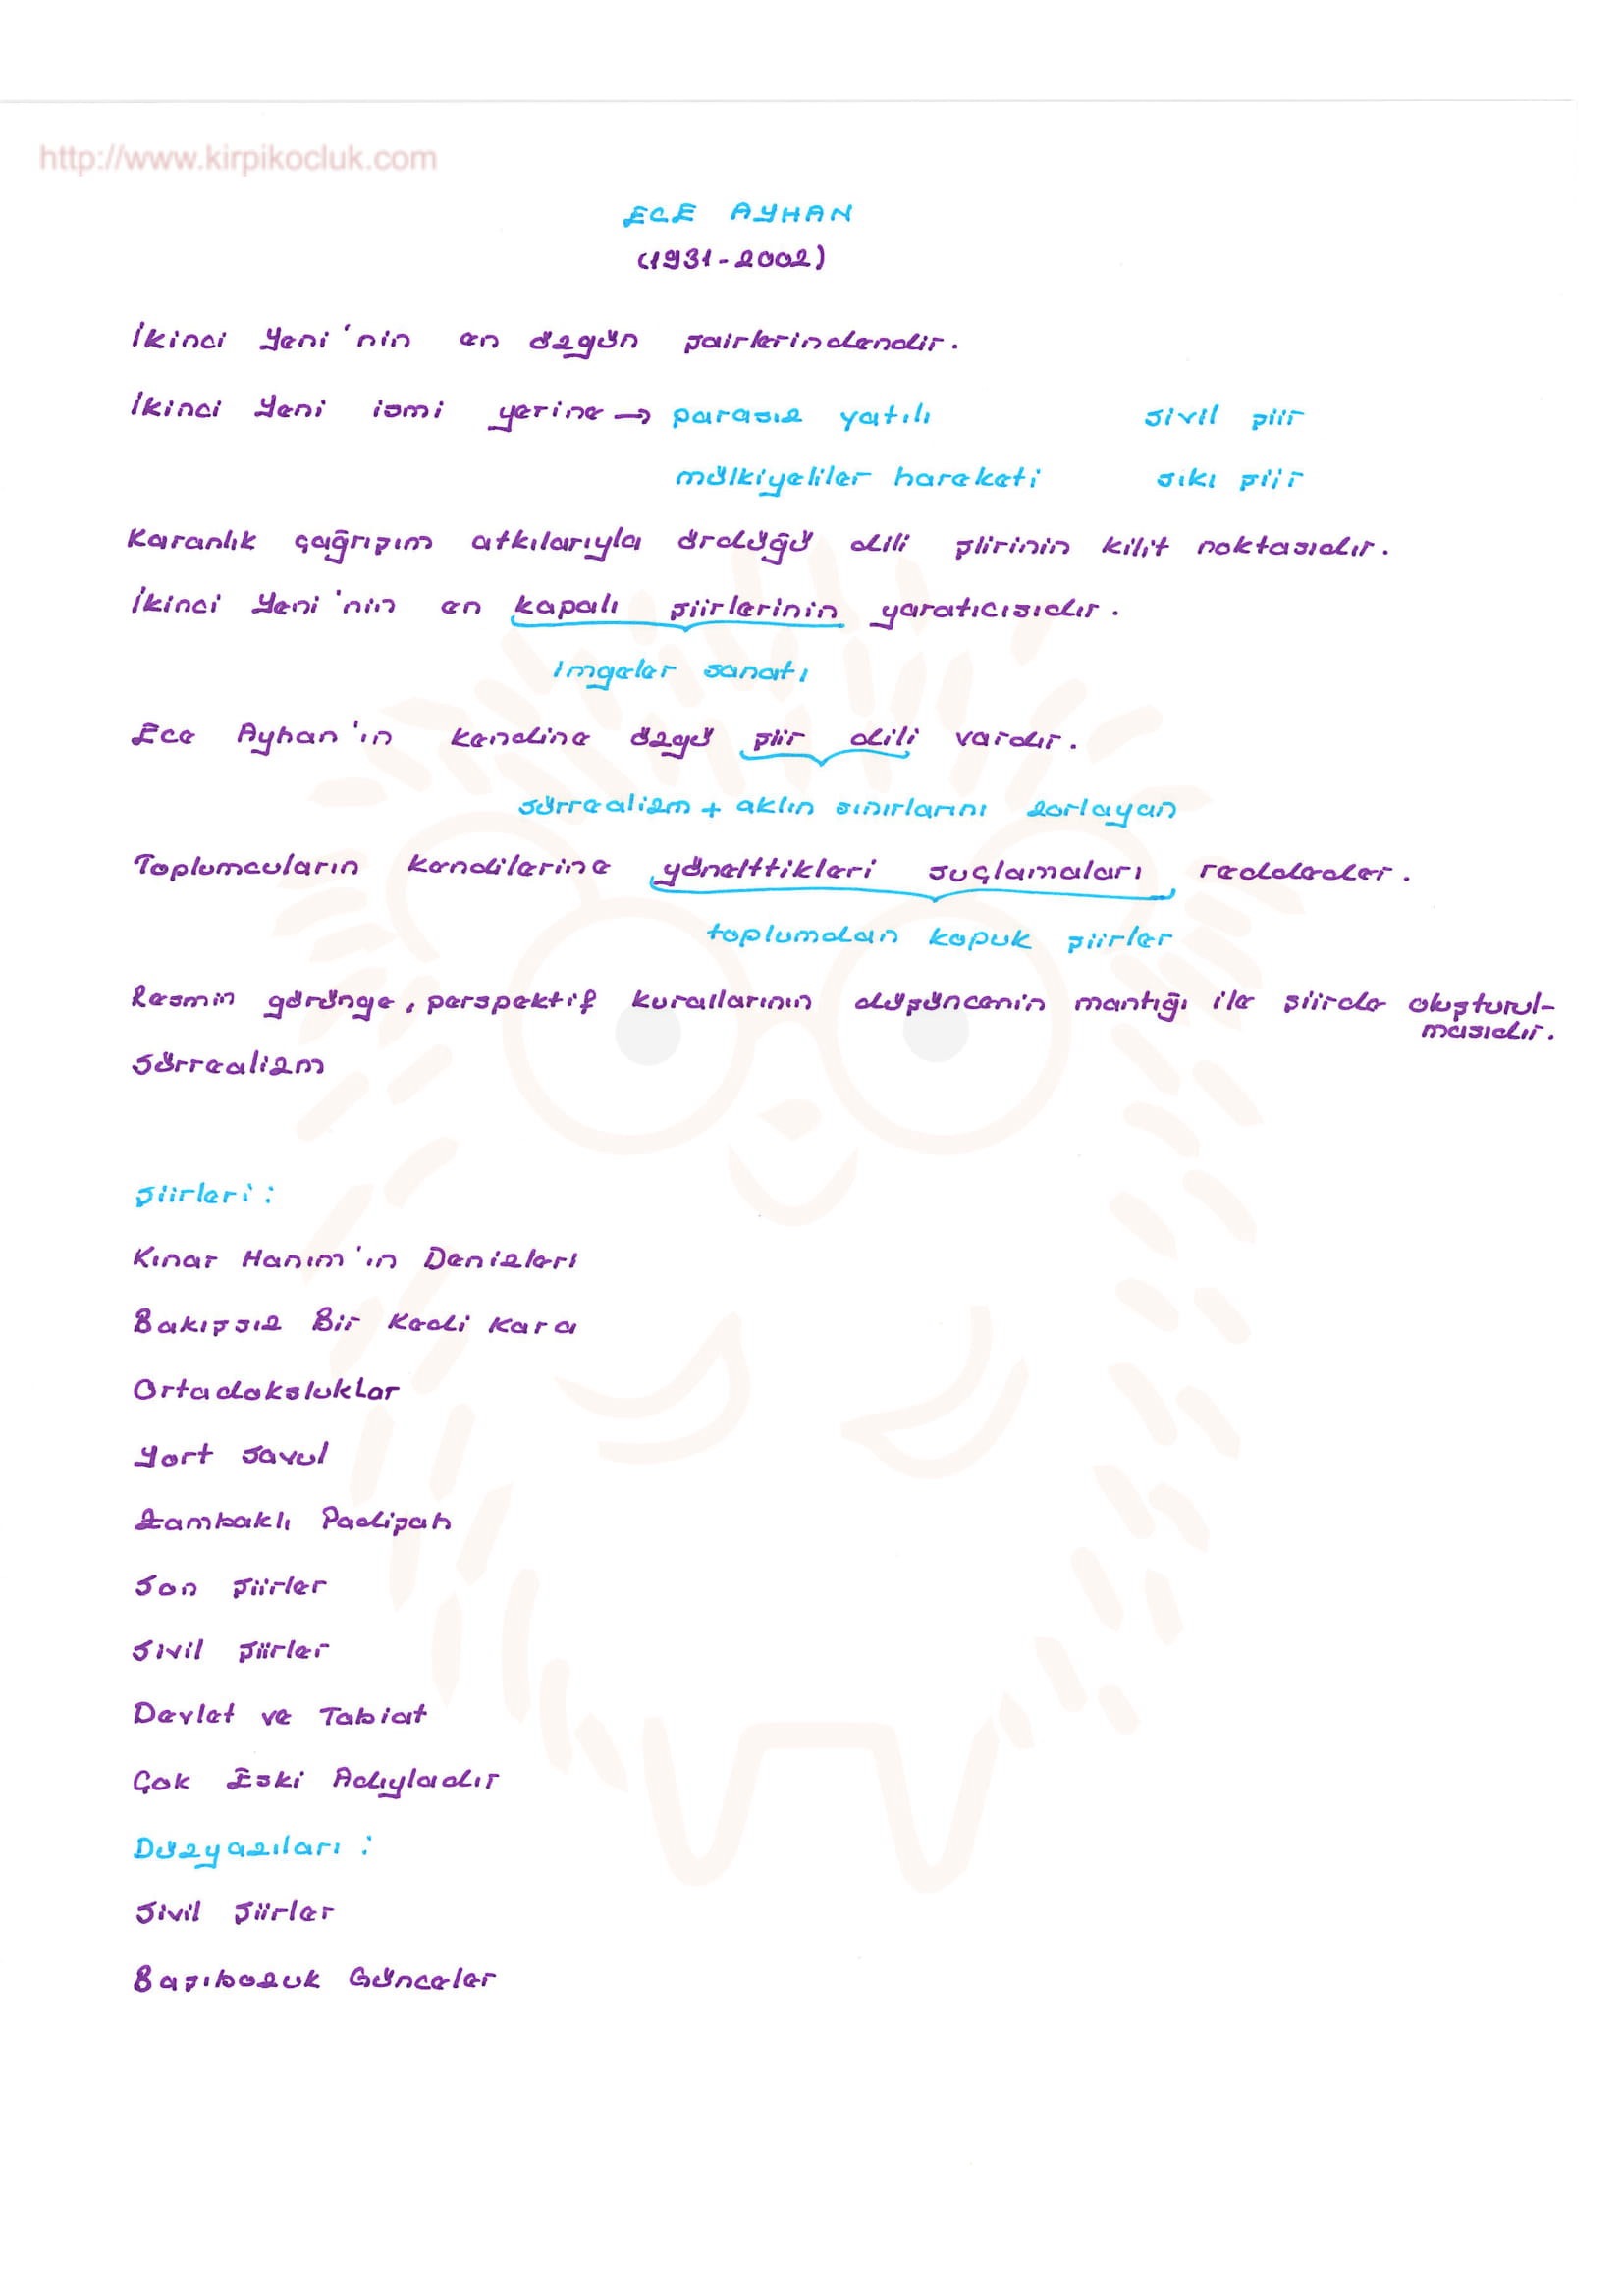 http://www.kirpikocluk.com
ECE AYHAN
(1931-2002)
İkinci Yeni'nin en özgün şairlerindendir.
İkinci Yeni ismi yerine → parasız yatılı sivil şiir
mülkiyeliler hareketi sıkı şiir
Karanlık çağrışım atkılarıyla ördüğü dili şiirinin kilit noktasıdır.
İkinci Yeni'nin en kapalı şiirlerinin yaratıcısıdır.
imgeler sanatı
Ece Ayhan'ın kendine özgü şiir dili vardır.
sürrealizm + aklın sınırlarını zorlayan
Toplumcuların kendilerine yönelttikleri suçlamaları reddeder.
toplumdan kopuk şiirler
Resmin görünge, perspektif kurallarının düşüncenin mantığı ile şiirde oluşturul-
masıdır.
Sürrealizm
Şiirleri:
Kınar Hanım'ın Denizleri
Bakışsız Bir Kedi Kara
Ortadoksluklar
Yort Savul
Zambaklı Padişah
Son Şiirler
Sivil Şiirler
Devlet ve Tabiat
Çok Eski Adıyladır
Düzyazıları:
Sivil Şiirler
Başıbozuk Günceler